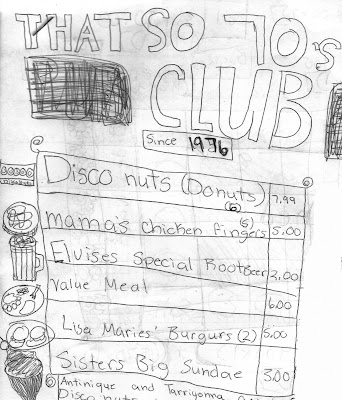 THAT SO 70's
CLUB
Since 1976
Disco nuts (Donuts) 7.99
(6)
mama's chicken fingers 5.00
(5)
Elvises Special RootBeer 2.00
Value Meal 6.00
Lisa Maries' Burgurs (2) 5.00
Sisters Big Sundae 3.00
Antinique and Tarriyonna
Disco nuts